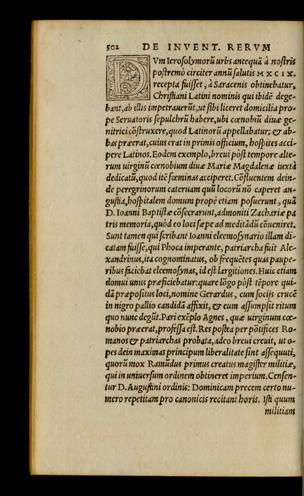 502 DE INVENT. RERVM
DVm Ierosolymorũ urbs antequã à nostris
postremò circiter annũ salutis M X C I X.
recepta fuisset, à Saracenis obtinebatur,
Christiani Latini nominis qui ibidẽ dege-
bant, ab illis impetrauerũt, ut sibi liceret domicilia pro-
pe Seruatoris sepulchrũ habere, ubi cœnobiũ diuæ ge-
nitrici cõstruxere, quod Latinorũ appellabatur; & ab-
bas præerat, cuius erat in primis officium, hospites acci-
pere Latinos. Eodem exemplo, breui pòst tempore alte-
rum uirginũ cœnobium diuæ Mariæ Magdalenæ iuxtà
dedicatũ, quod itẽ fœminas acciperet. Cõfluentem dein-
de peregrinorum cateruam quũ locorũ nõ caperet an-
gustia, hospitalem domum propè etiam posuerunt, quã
D. Ioanni Baptistæ cõsecrarunt, admoniti Zachariæ pa
tris memoria, quòd eo loci sæpe ad meditãdũ cõueniret.
Sunt tamen qui scribant Ioanni eleemosynario illam di-
catam fuisse, qui Phoca imperante, patriarcha fuit Ale-
xandrinus, ita cognominatus, ob frequẽtes quas paupe-
ribus faciebat eleemosynas, id est largitiones. Huic etiam
domui unus præficiebatur: quare lõgo pòst tẽpore qui-
dã præpositus loci, nomine Gerardus, cum socijs crucẽ
in nigro pallio candidã affixit, & eum assumpsit ritum
quo nunc degũt. Pari exẽplo Agnes, quæ uirginum cœ-
nobio præerat, professa est. Res postea per põtifices Ro-
manos & patriarchas probata, adeo breui creuit, ut o-
pes dein maximas principum liberalitate sint assequuti,
quorũ mox Ramũdus primus creatus magister militiæ,
qui in uniuersum ordinem obtineret imperium. Censen-
tur D. Augustini ordinis: Dominicam precem certo nu-
mero repetitam pro canonicis recitant horis. Isti quum
militiam